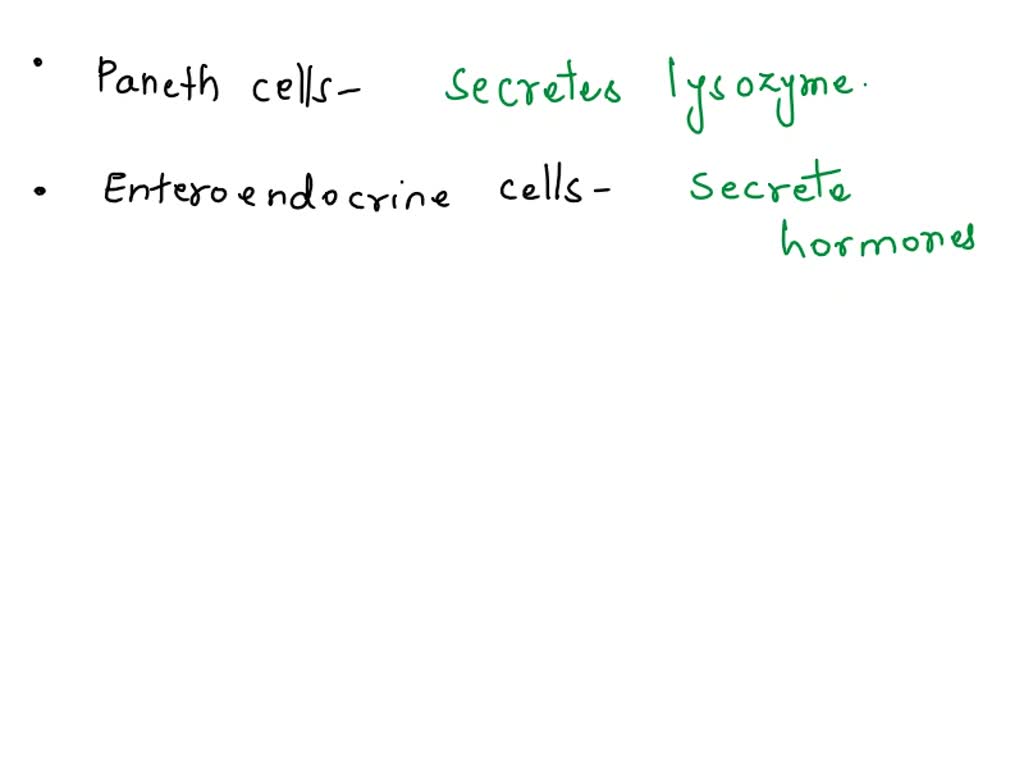 • Paneth cells- secretes lysozyme.
• Enteroendocrine cells- secrete
hormones